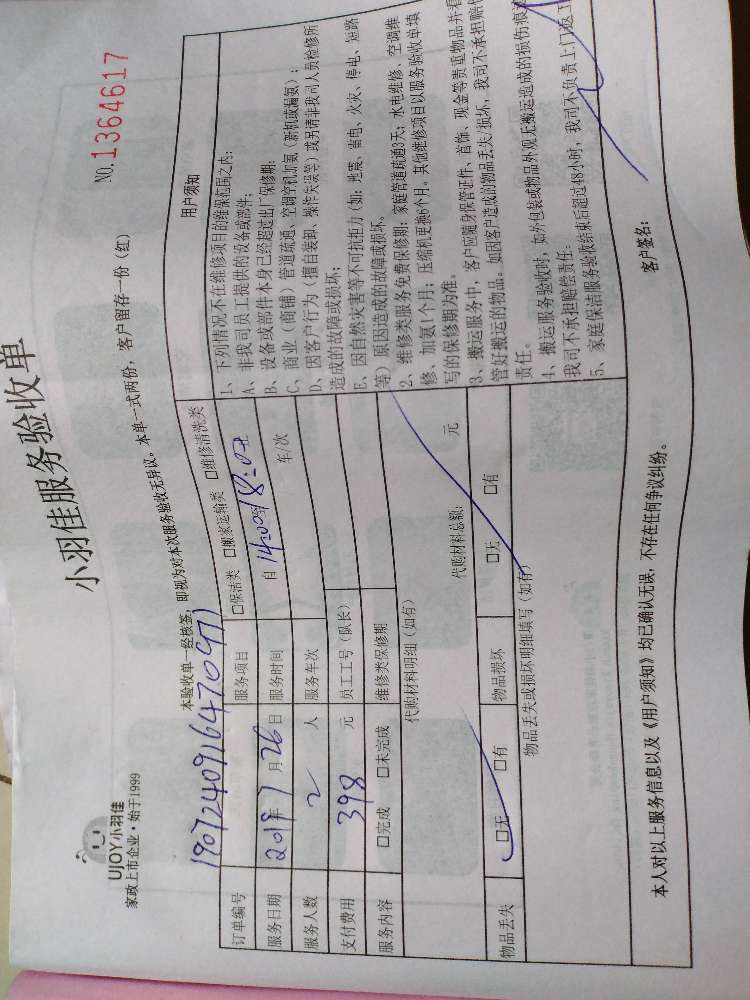 小羽佳服务验收单
UJOY小羽佳
家政上市企业·始于1999
NO.1364617
本验收单一经核签,即视为对本次服务验收无异议。本单一式两份,客户留存一份(红)
订单编号 190724091647097 服务项目 □保洁类 □搬家运输类 □维修清洗类
服务日期 2019年7月26日 服务时间 自14:00至18:00止
服务人数 2 人 服务车次 车/次
支付费用 398 元 员工工号(队长)
服务内容 □完成 □未完成 维修类保修期
代购材料明细(如有)
代购材料总额: 元
物品丢失 □无 □有 物品损坏 □无 □有
物品丢失或损坏明细填写(如有)
用户须知
1、下列情况不在维修项目的维保范围之内:
A、非我司员工提供的设备或部件;
B、设备或部件本身已经超过出厂保修期;
C、商业(商铺)管道疏通、空调空机加氨(新机或漏氨);
D、因客户行为(擅自装卸、操作失误等)或另请非我司人员检修所
造成的故障或损坏;
E、因自然灾害等不可抗拒力(如:地震、雷电、火灾、停电、短路
等)原因造成的故障或损坏。
2、维修类服务免费保修期:家庭管道疏通3天;水电维修、空调维
修、加氨1个月;压缩机更换6个月。其他维修项目以服务验收单填
写的保修期为准。
3、搬运服务中,客户应随身保管证件、首饰、现金等贵重物品并看
管好搬运的物品。如因客户造成的物品丢失/损坏,我司不承担赔偿
责任。
4、搬运服务验收时,如外包装或物品外观无搬运造成的损伤痕
我司不承担赔偿责任。
5、家庭保洁服务验收结束后超过48小时,我司不负责上门返工
本人对以上服务信息以及《用户须知》均已确认无误,不存在任何争议纠纷。
客户签名: